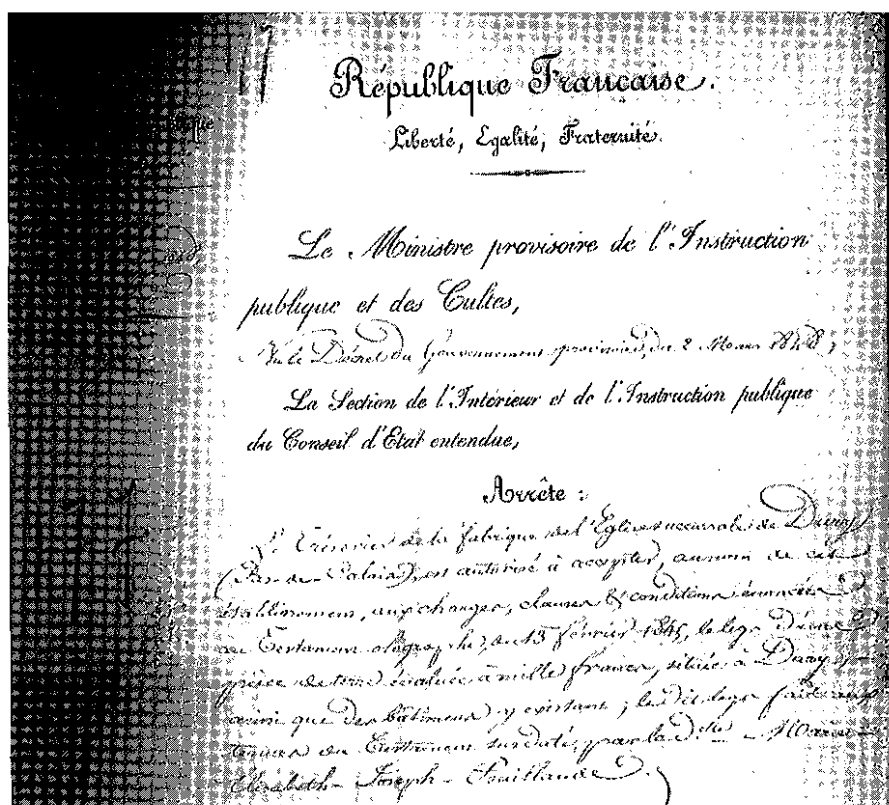 République Française.
Liberté, Egalité, Fraternité.
Le Ministre provisoire de l'Instruction
publique et des Cultes,
Vu le Décret du Gouvernement provisoire, du 2 Mars 1848,
La Section de l'Intérieur et de l'Instruction publique
du Conseil d'Etat entendue,
Arrête :
Le Trésorier de la fabrique de l'Eglise succursale de Dury
(Pas-de-Calais), est autorisé à accepter, au nom de cet
établissement, aux charges, clauses & conditions énoncées
au Testament olographe, du 13 février 1845, le legs d'une
pièce de terre évaluée à mille francs, située à Dury,
ainsi que des bâtiments y existant; le dit legs fait aux
termes du Testament susdaté, par la dite Marie
Elisabeth-Joseph